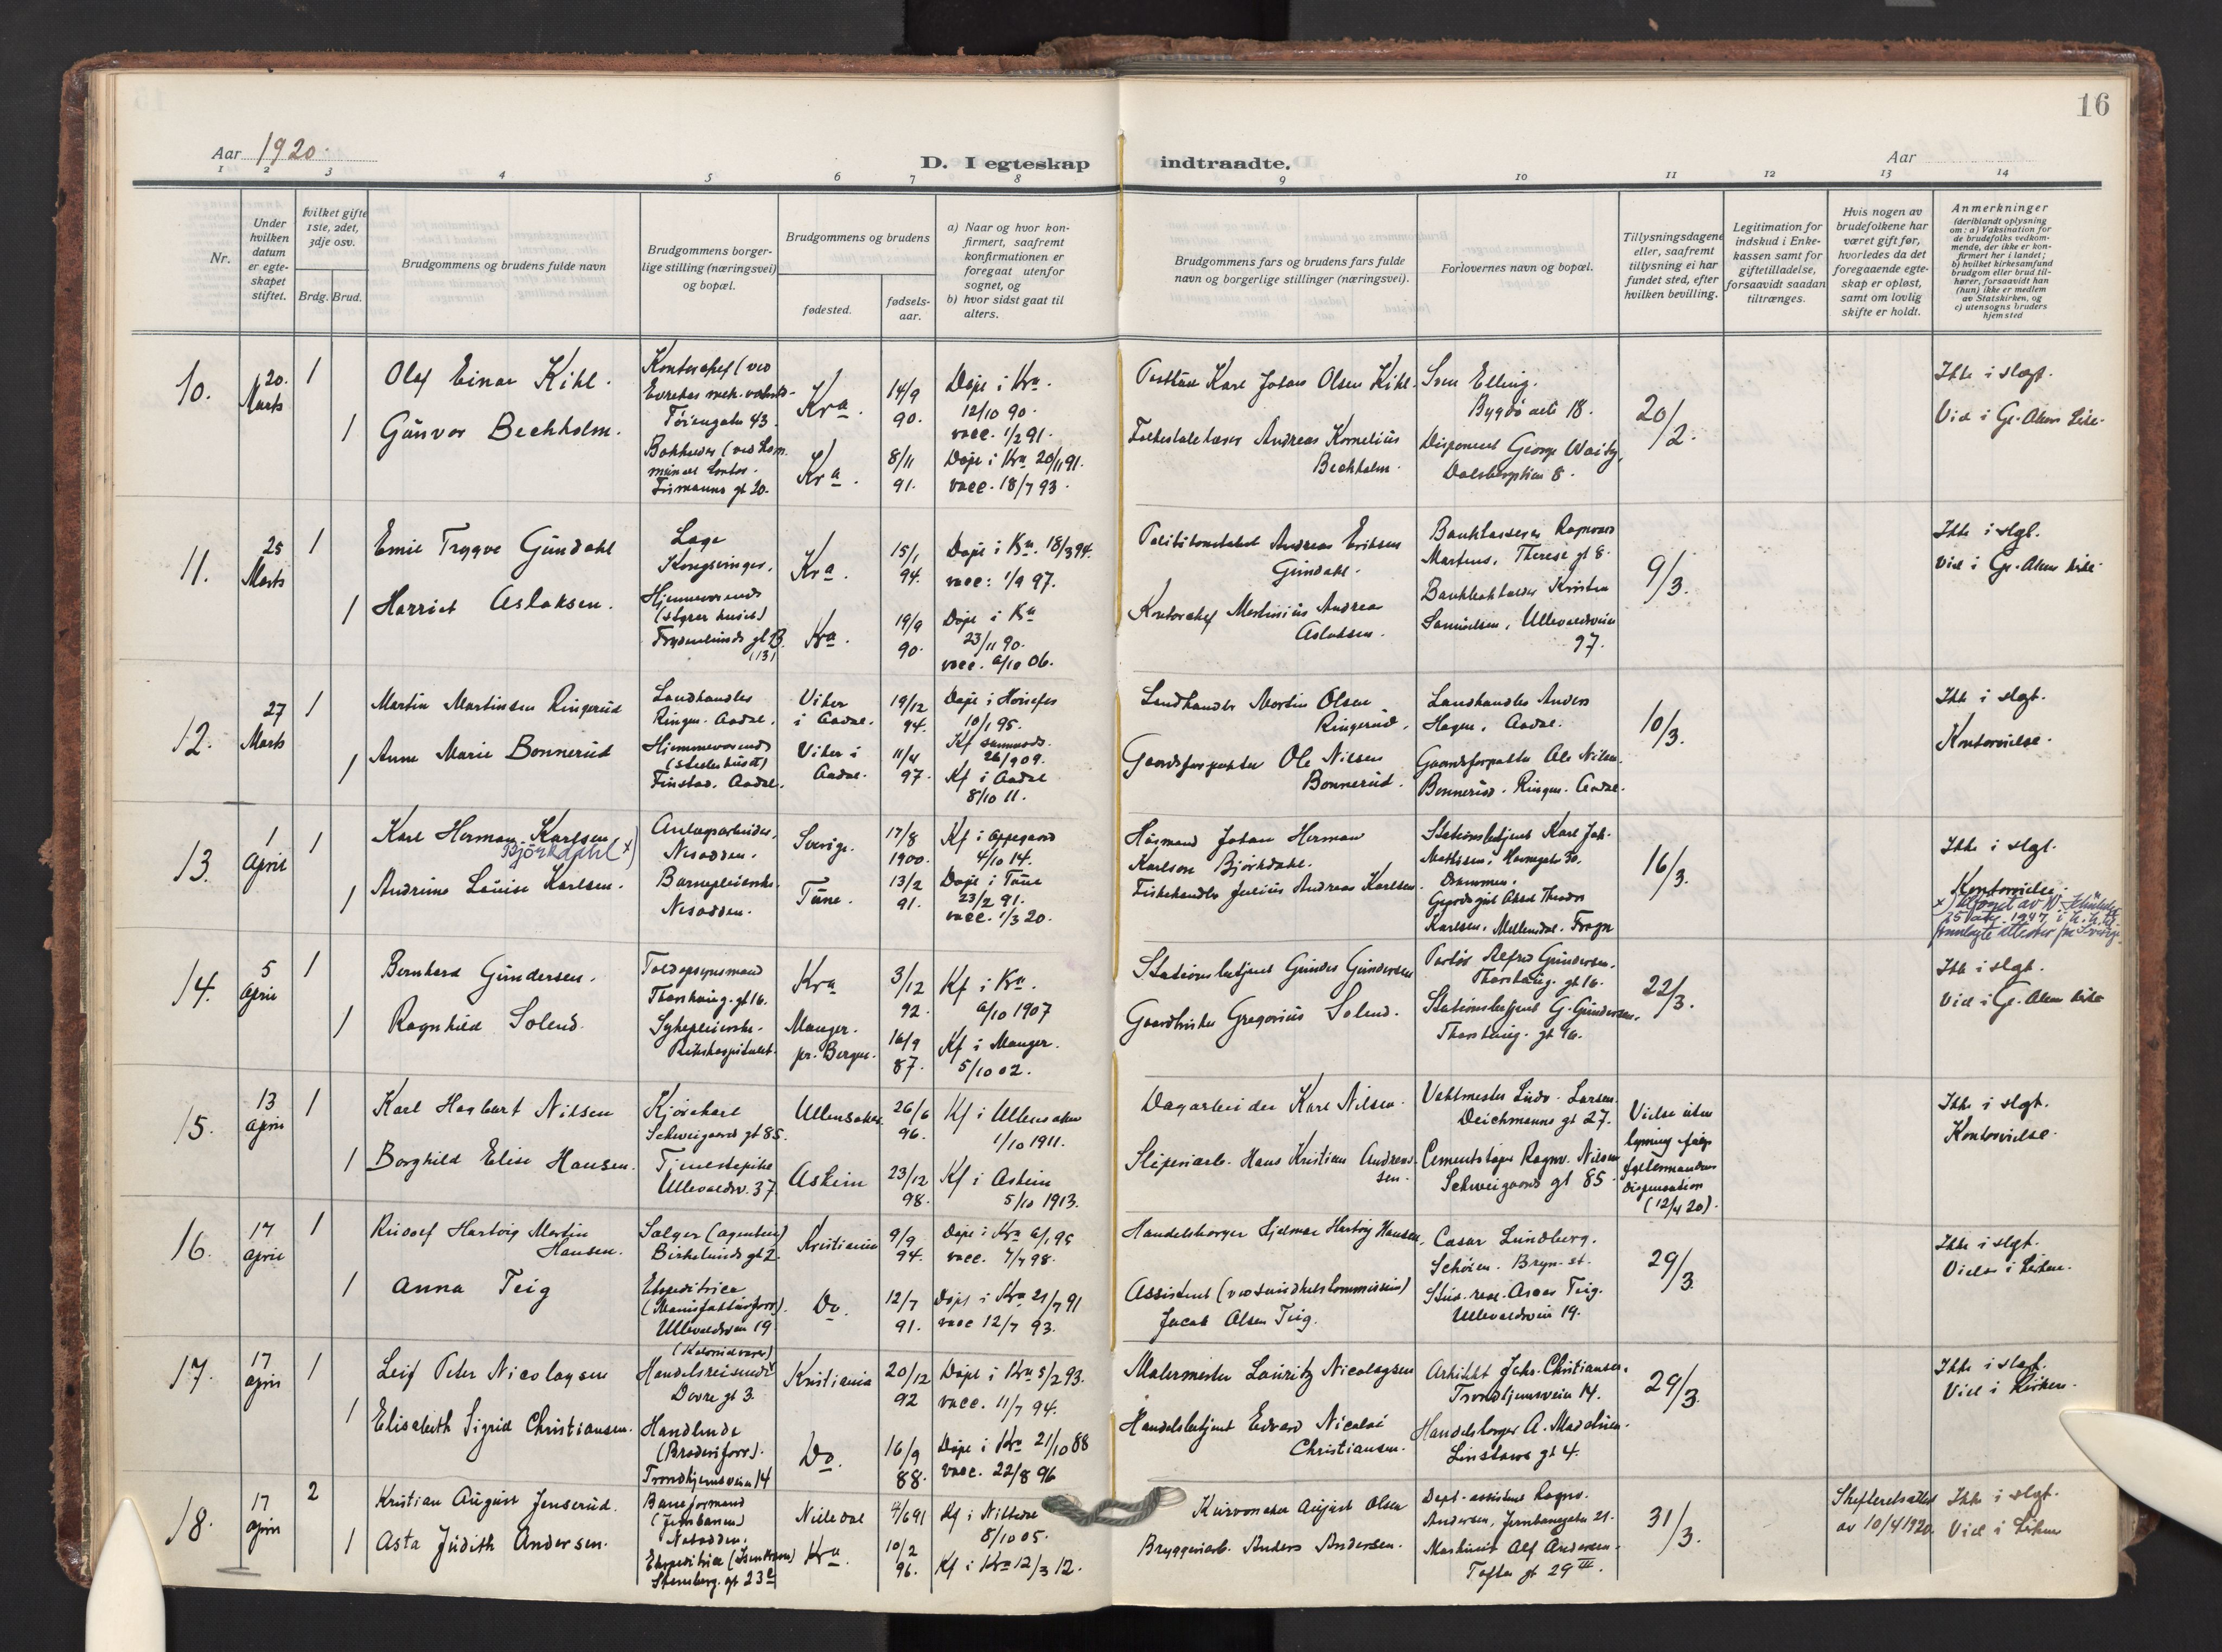 16
Aar 1920.
D. I egteskap indtraadte.
Aar
1 2 3 4 5 6 7 8 9 10 11 12 13 14
Nr.
Under hvilken datum er egteskapet stiftet.
Hvilket gifte 1ste, 2det, 3dje osv.
Brdg. Brud.
Brudgommens og brudens fulde navn
Brudgommens borgerlige stilling (næringsvei) og bopæl.
Brudgommens og brudens
fødested.
fødselsaar.
a) Naar og hvor konfirmert, saafremt konfirmationen er foregaat utenfor sognet, og
b) hvor sidst gaat til alters.
Brudgommens fars og brudens fars fulde navn og borgerlige stillinger (næringsvei).
Forlovernes navn og bopæl.
Tillysningsdagene eller, saafremt tillysning ei har fundet sted, efter hvilken bevilling.
Legitimation for indskud i Enkekassen samt for giftetilladelse, forsaavidt saadan tiltrænges.
Hvis nogen av brudefolkene har været gift før, hvorledes da det foregaaende egteskap er opløst, samt om lovlig skifte er holdt.
Anmerkninger
(deriblandt oplysning om: a) Vaksination for de brudefolks vedkommende, der ikke er konfirmert her i landet; b) hvilket kirkesamfund brudgom eller brud tilhører, forsaavidt han (hun) ikke er medlem av Statskirken, og c) utensogns bruders hjemsted
10.
20. Marts
1
Olaf Einar Kihl.
Kontorchef (ved
Tøiengaten 43
Kra.
14/9 90.
Døpt i Kra.
12/10 90.
vacc. 1/2 91.
Karl Johan Olsen Kihl.
Sven Elling.
Bygdø allé 18.
20/2.
Ikke i slegt.
Viet i Gl. Akers kirke.
1
Gunvor Bechholm.
Kra.
8/11 91.
Døpt i Kra 20/11 91.
vacc. 18/7 93.
Andreas Kornelius
Bechholm.
Disponent George
Dalsbergstien 8.
11.
25 Marts
1
Emil Trygve Gundahl
Kongsvinger.
Kra.
15/1 94.
Døpt i Kra. 18/3 94.
vacc: 1/9 97.
Andreas Eriksen
Gundahl.
Bankkasserer Ragnvald
Martens, Therese gt 8.
9/3.
Ikke i slegt.
Viet i Gl. Akers kirke.
1
Harriet Aslaksen.
Hjemmeværende
(styrer huset)
Frydenlunds gt 13
(13)
Kra.
19/9 90.
Døpt i Kra
23/11 90.
vacc. 6/10 06.
Kontorchef Martinius Andreas
Aslaksen.
Samuelsen, Ullevaldsveien
97.
12.
27 Marts
1
Martin Martinsen Ringerud
Landhandler
Ringer. Aadal.
Viker
i Aadal.
19/12 94.
Døpt i Hønefos
10/1 95.
Landhandler Martin Olsen
Ringerud.
Landhandler Anders
Hagen, Aadal.
10/3.
Ikke i slegt.
Kontorvielse.
1
Anne Marie Bonnerud
Hjemmeværende
(steller huset)
Finstad. Aadal.
Viker i
Aadal.
11/4 97.
Kf i Aadal
8/10 11.
Gaardsforpakter Ole Nilsen
Bonnerud.
Gaardsforpakter Ole Nilsen
Bonnerud. Ringer. Aadal.
13.
1 April
1
Karl Herman Karlsen
Björkdahl x)
Anlægsarbeider.
Nesodden.
Sverige.
17/8 1900.
Kf i Oppegaard
4/10 14.
Husmand Johan Herman
Karlson Bjørkdahl.
Stationsbetjent Karl Joh.
Mathisen, Havnegate 30.
Drammen.
16/3.
Ikke i slegt.
Kontorvielse.
1
Andrine Louise Karlsen.
Barnepleierske.
Nesodden.
Tune.
13/2 91.
Døpt i Tune
23/2 91.
vacc. 1/3 20.
Fiskehandler Julius Andreas Karlsen.
Karlsen. Mellemdal. Frogn
14.
5 April
1
Bernhard Gundersen.
Toldopsynsmand
Thorshaug. gt 16.
Kra
3/12 92.
Kf i Kra.
6/10 1907
Stationsbetjent Gunder Gundersen
Alfred Gundersen.
Thorshaug. gt 16.
22/3.
Ikke i slegt.
Viet i Gl. Akers kirke
1
Ragnhild Solend.
Sykepleierske.
Rikshospitalet.
Manger.
pr. Bergen.
16/9 87.
Kf i Manger.
5/10 02.
Gaardbruker Gregorius Solend.
Stationsbetjent G. Gundersen.
Thorshaug. gt 16.
15.
13 April
1
Karl Harbart Nilsen
Kjørekarl
Schweigaards gt 85.
Ullensaker.
26/6 96.
Kf i Ullensaker
1/10 1911.
Dagarbeider Karl Nilsen.
Vaktmester Ludv. Larsen.
Deichmanns gt 27.
Vielse uten
lysning ifølge
dispensation
(12/4 20).
Ikke i slegt.
Kontorvielse.
1
Borghild Elise Hansen.
Tjenestepike
Ullevaldsv. 37
Askim
23/12 98.
Kf i Askim
5/10 1913.
Sliperiarb. Hans Kristian Andreassen.
Cementstøper Ragnv. Nilsen
Schweigaards gt 85.
16.
17 April
1
Rudolf Hartvig Martin
Hansen.
Sælger (agentur)
Birkelunds gt 2
Kristiania
9/9 94.
vacc. 7/7 98.
Handelsborger Hjalmar Hartvig Hansen.
Casar Lundberg.
Bryn st.
29/3
Ikke i slegt.
Vielse i kirken.
1
Anna Teig
Ekspeditrice
(Manufakturforr.).
Ullevaldsveien 19
Do.
12/7 91.
Døpt i Kra 21/7 91
vacc 12/7 93.
Jacob Olsen Teig.
Stud. real. Asser Teig.
Ullevaldsveien 19.
17.
17 April
1
Leif Peter Nicolaysen
(Kolonialvarer)
Handelsreisende
Dovre gt 3.
Kristiania
20/12 92
Døpt i Kra 5/2 93.
vacc. 11/7 94.
Malermester Lauritz Nicolaysen
Arkitekt Johs. Christiansen.
Trondhjemsveien 14.
29/3.
Ikke i slegt.
Viet i kirken.
1
Elisabeth Sigrid Christiansen.
Handlende
(Broderiforr.).
Trondhjemsveien 14
Do.
16/9 88.
Døpt i Kra 21/10 88
vacc. 22/8 96
Handelsbetjent Edvard Nicolai
Christiansen.
Handelsborger A. Madsen.
Linstows gt 4.
18.
17 April
2
Kristian August Jenserud.
Baneformand
(Jernbanen)
Nesodden.
Nittedal
4/6 91
Kf i Nittedal
8/10 05.
Kurvmaker August Olsen
Dept.-assistent Ragnv.
Andersen, Jernbanegaten 21.
31/3.
Skifteretsattest
av 10/4 1920.
Ikke i slegt.
Viet i kirken
1
Asta Judith Andersen.
Stensberg. gt 23
Kra.
10/2 96.
Kf i Kra 12/3 12.
Bryggeriarb. Anders Andersen.
Maskinist Alf Andersen.
Toftes gt 29 III.